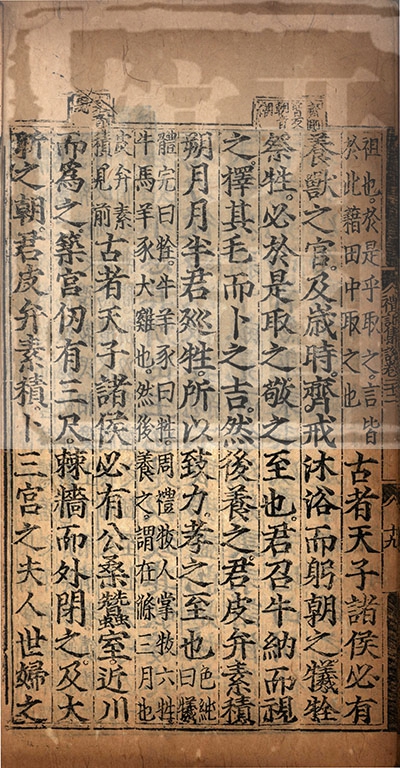 祖也。於是乎取之。言皆
於此藉田中取之也
古者天子諸侯必有
養獸之官。及歲時。齊戒沐浴而躬朝之。犧牷
祭牲。必於是取之。敬之至也。君召牛納而視
之。擇其毛而卜之。吉。然後養之。君皮弁素積
朔月月半。君巡牲。所以致力。孝之至也
色純
曰犧
體完曰牷。牛羊豕曰牲。周禮牧人掌牧六牲
牛馬羊豕犬雞也。然後養之。謂在滌三月也
皮弁素
積見前
古者天子諸侯必有公桑蠶室。近川
而為之。築宮仞有三尺。棘牆而外閉之。及大
昕之朝。君皮弁素積。卜三宮之夫人世婦之